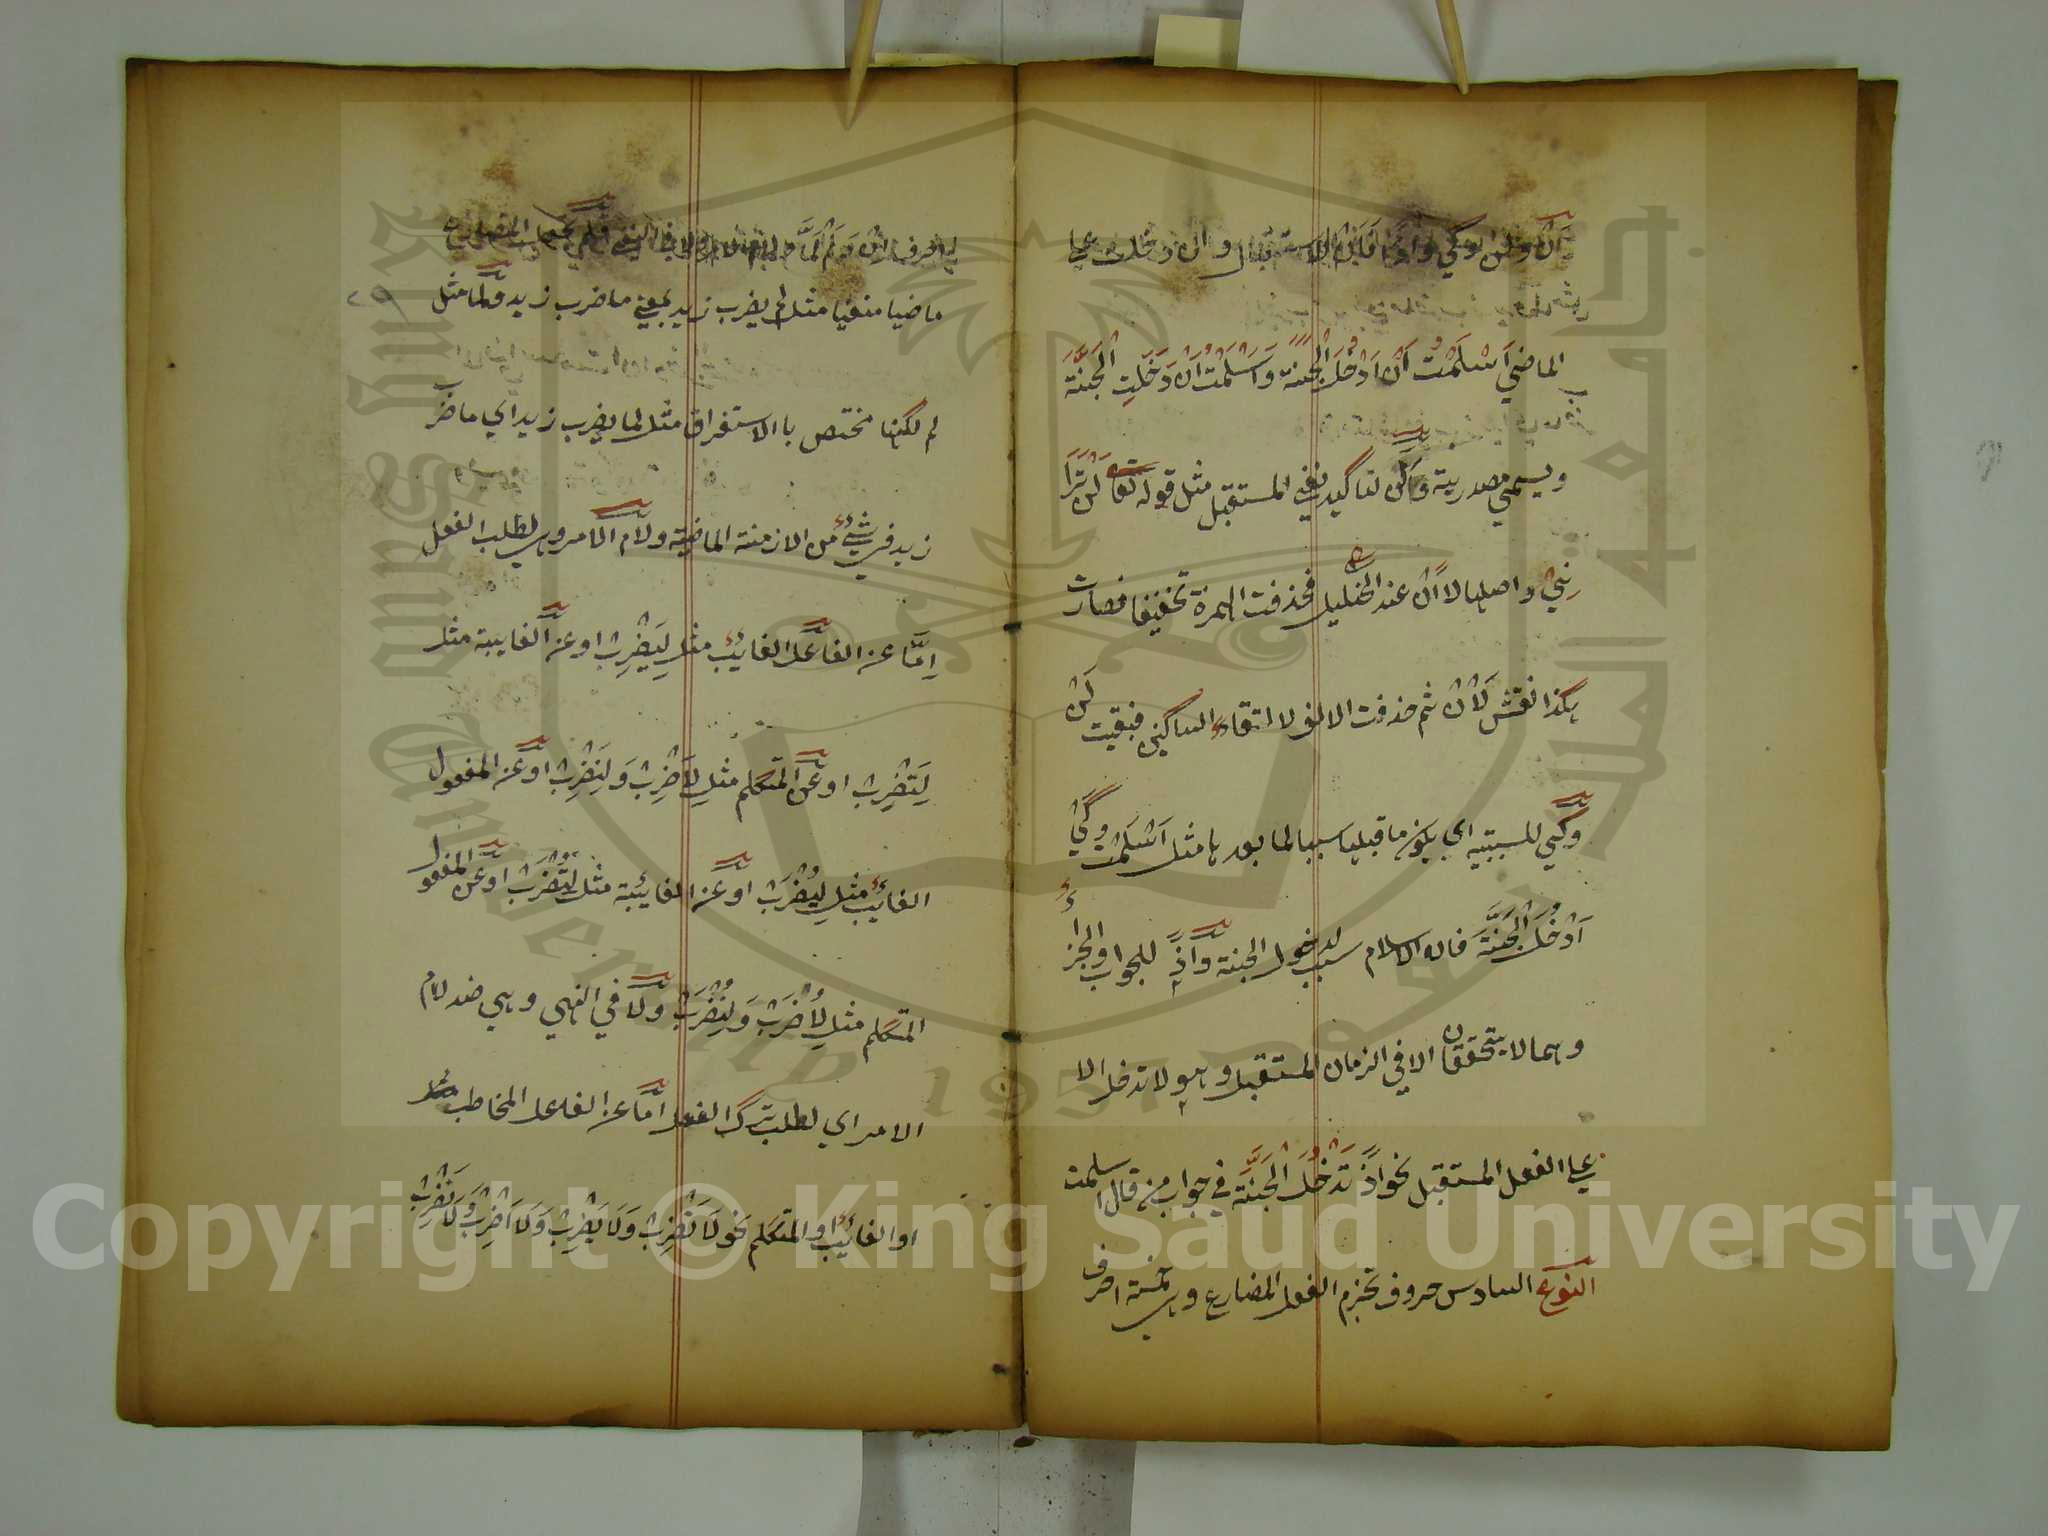 اَنْ ولن وكي واذن فان للاستقبال وان دخلت علي
الماضي اَسْلَمْتُ اَنْ اَدْخُلَ الْجَنَّةَ وَاَسْلَمْتُ اَنْ دَخَلْتُ الْجَنَّةَ
ويسمي مصدرية وَلَن لتاكيد نفي المستقبل مثل قوله تعالي لَنْ تَرَا
نِيْ واصلها لا اَنْ عند الخليل فحذفت الهمزة تخفيفا فصارت
هكذا نقش لَانْ ثم حذفت الالف لالتقاء الساكنين فبقيت لَنْ
وكَي للسببية اي يكون ما قبلها سببا لما بعدها مثل اَسْلَمْتُ كَيْ
اَدْخُلَ الْجَنَّةَ فان الاسلام سبب لدخول الجنة وَاِذَنْ للجواب والجزاء
وهما لا يتحققان الا في الزمان المستقبل وهو لا تدخل الا
علي الفعل المستقبل نحو اِذَنْ تَدْخُلَ الْجَنَّةَ في جواب من قال اسلمت
النوع السادس حروف تجزم الفعل المضارع وهي خمسة احرف
ماضيا منفيا مثل لم يضرب زيد بمعني ما ضرب زيد ولما مثل
لم لكنها مختص باالاستغراق مثل لما يضرب زيد اي ما ضرب
زيد في شئ من الازمنة الماضية ولام الامر وهي لطلب الفعل
اِمَّا عن الفاعل الغائب مثل لِيَضْرِبْ او عن الغايبة مثل
لِتَضْرِبْ او عن المتكلم مثل لِاَضْرِبْ وَلِنَضْرِبْ او عن المفعول
الغائب مثل لِيُضْرَبْ او عن الغائبة مثل لِتُضْرَبْ او عن المفعول
المتكلم مثل لِاُضْرَبْ وَلِنُضْرَبْ ولا في النهي وهي ضد لام
الامر اي لطلب ترك الفعل اما عن الفاعل المخاطب
او الغائب او المتكلم نحو لَا تَضْرِبْ وَلَا يَضْرِبْ وَلَا اَضْرِبْ وَلَا نَضْرِبْ
جامعة الملك سعود
King Saud University
1957
Copyright © King Saud University